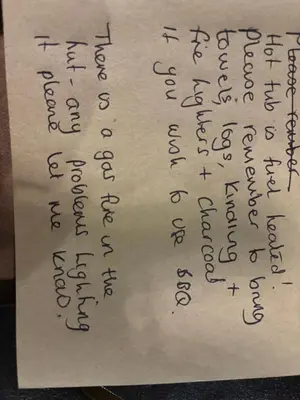 Please remember
Hot tub is fuel heated!
please remember to bring
towels, logs, kindling +
fire lighters + charcoal
if you wish to use BBQ.
There is a gas fire in the
hut - any problems lighting
it please let me know.